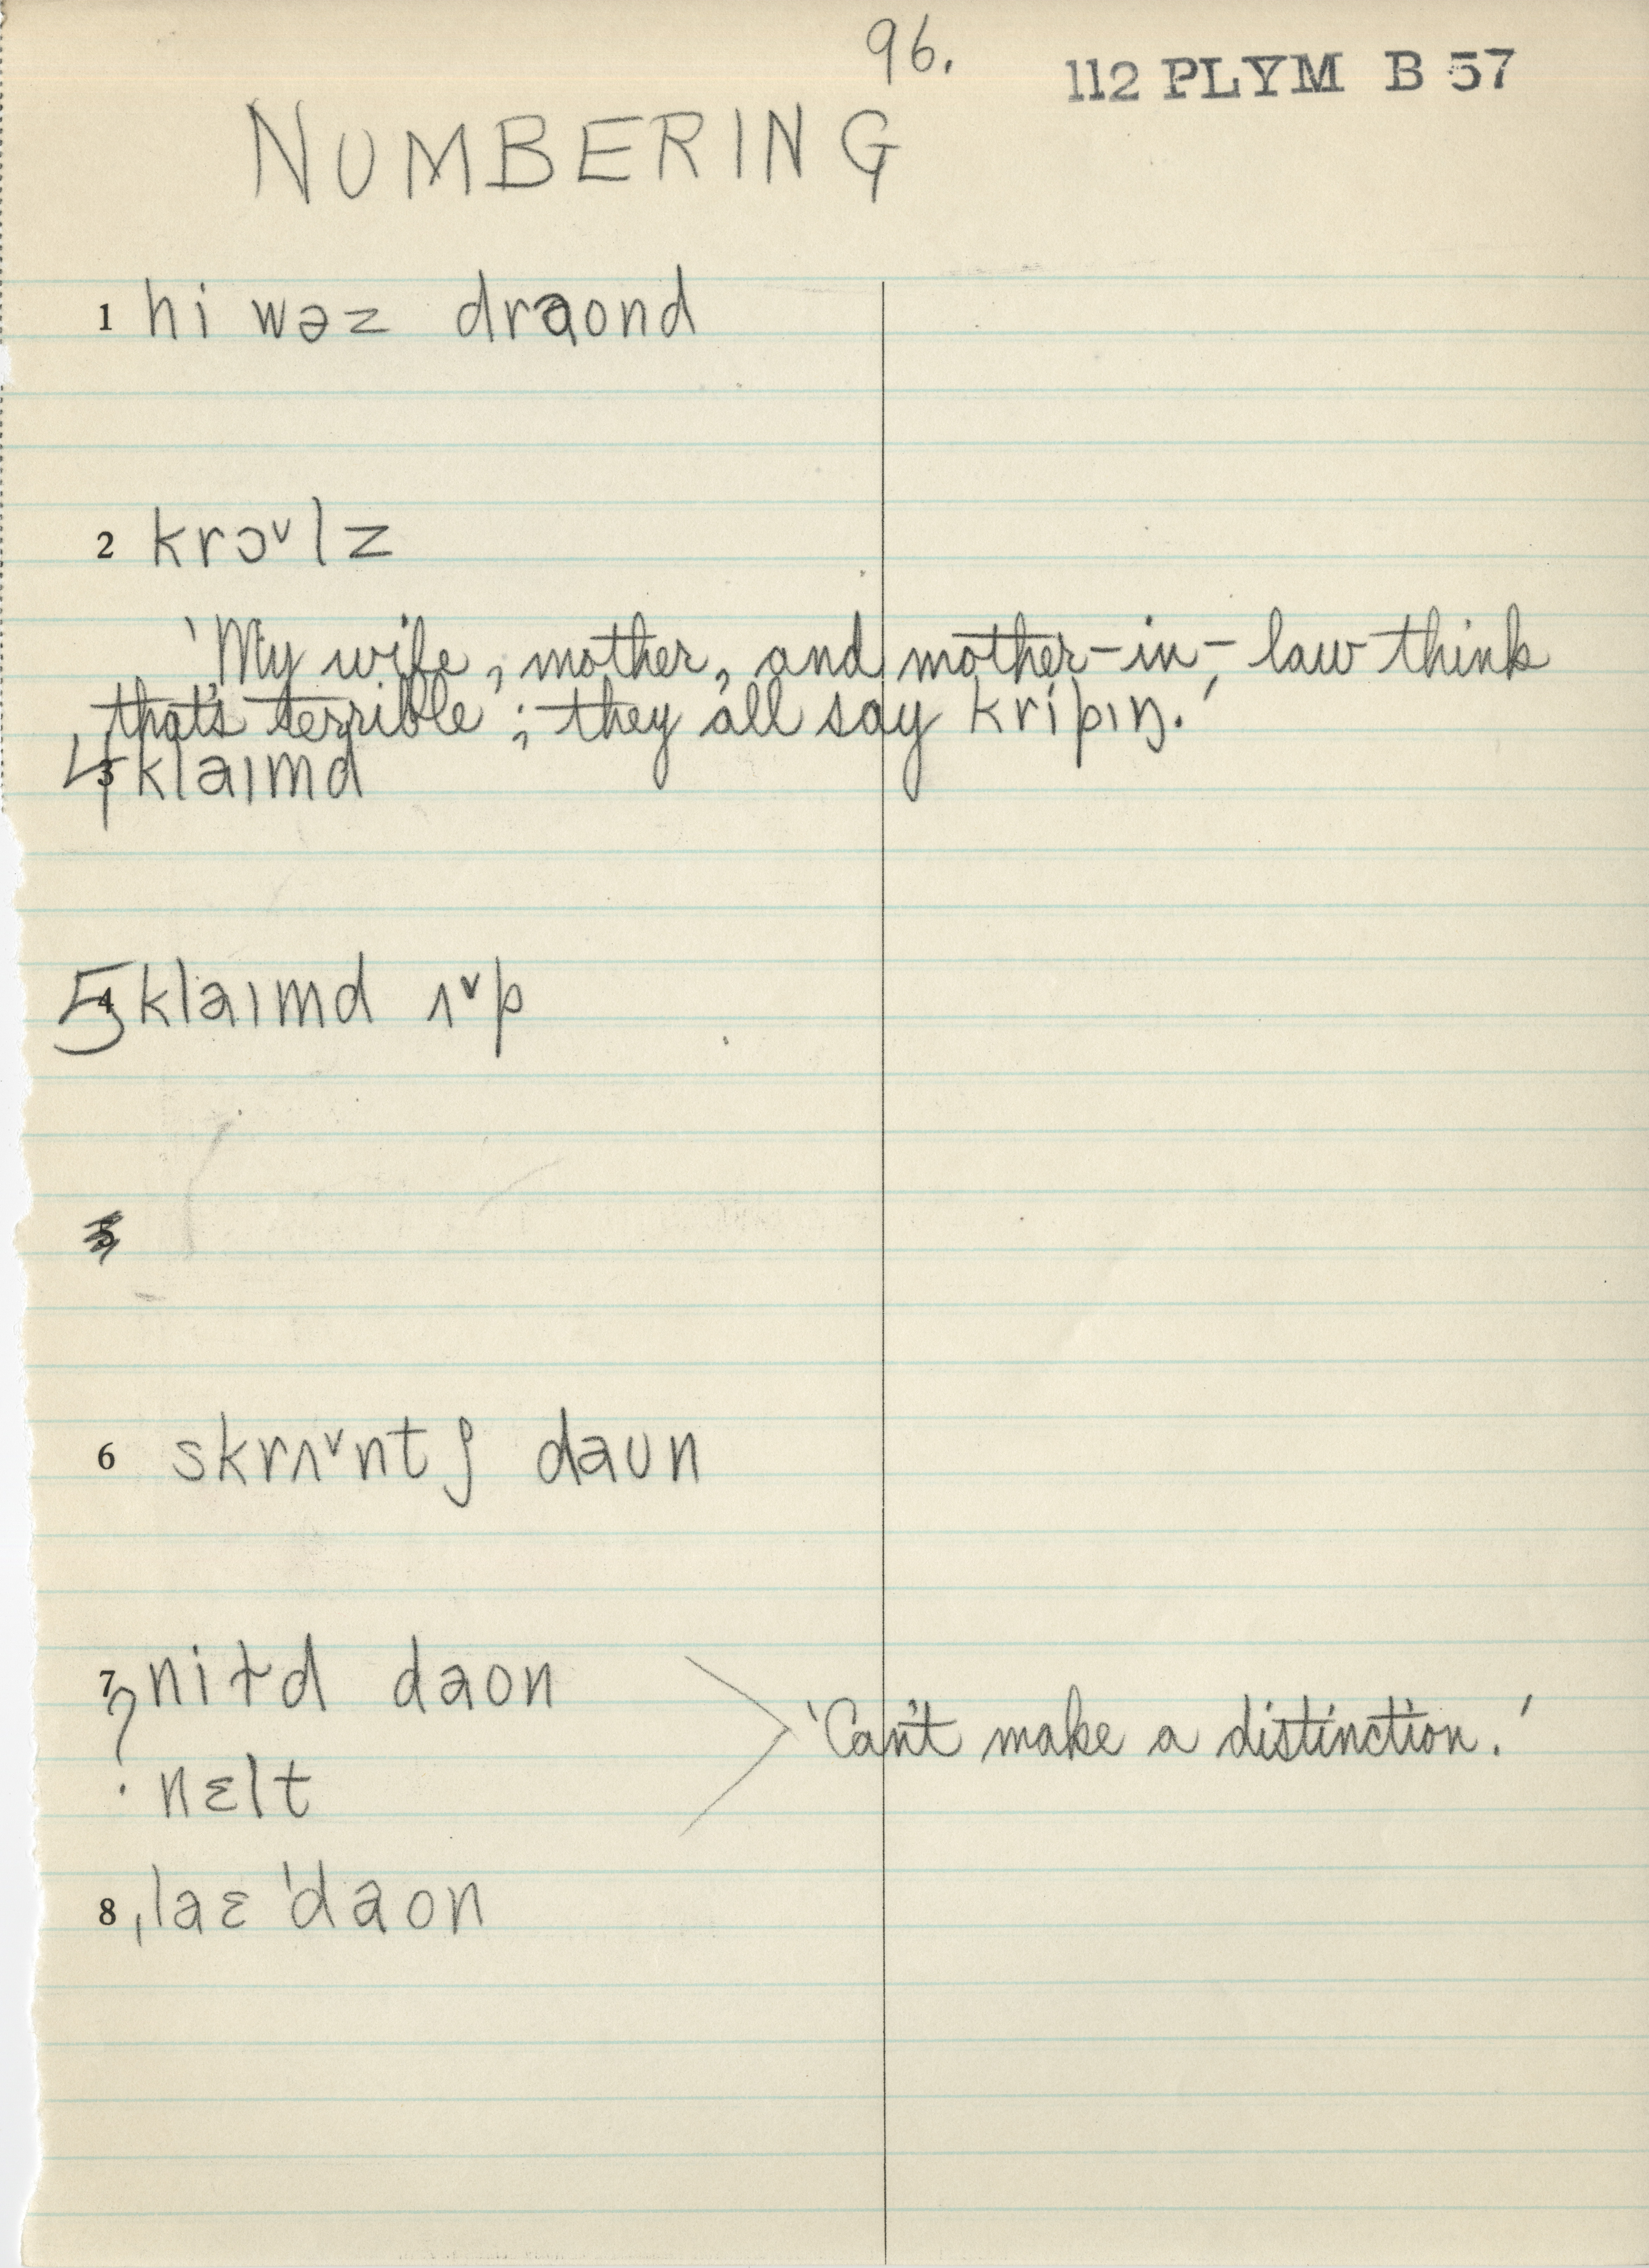 96.
112 PLYM B 57
NUMBERING
1 hi wəz draond
2 krɔˇlz
'My wife, mother, and mother-in-law think
that's terrible; they all say krípɪŋ.'
4 klaɪmd
5 klaɪmd ʌˇp
6 skrʌˇntʃ daʊn
7 niɫd daon
'Can't make a distinction.'
? nɛlt
8 ˌlaɛ ˈdaon